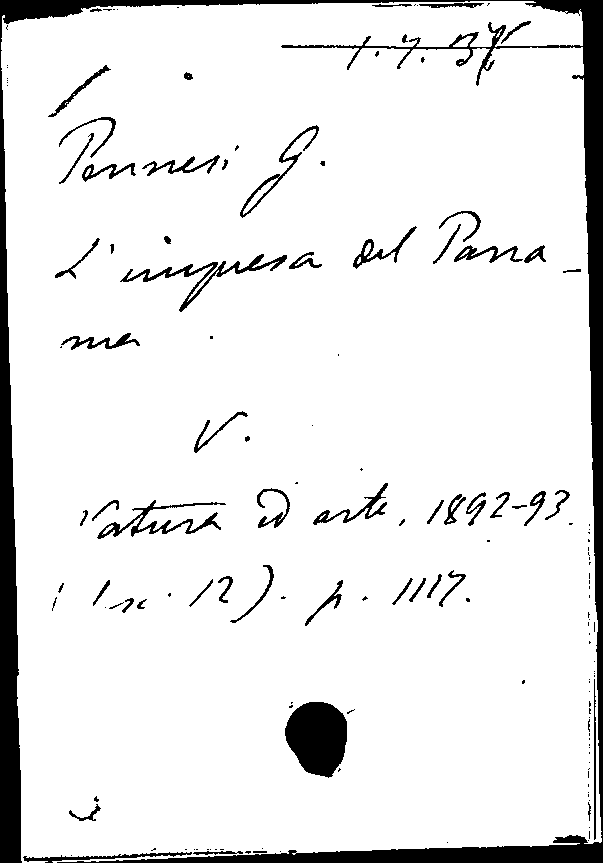 1. 7. 37
Pennesi G.
L'impresa del Pana-
ma
V.
Natura ed arte, 1892-93.
( 12). p. 1117.